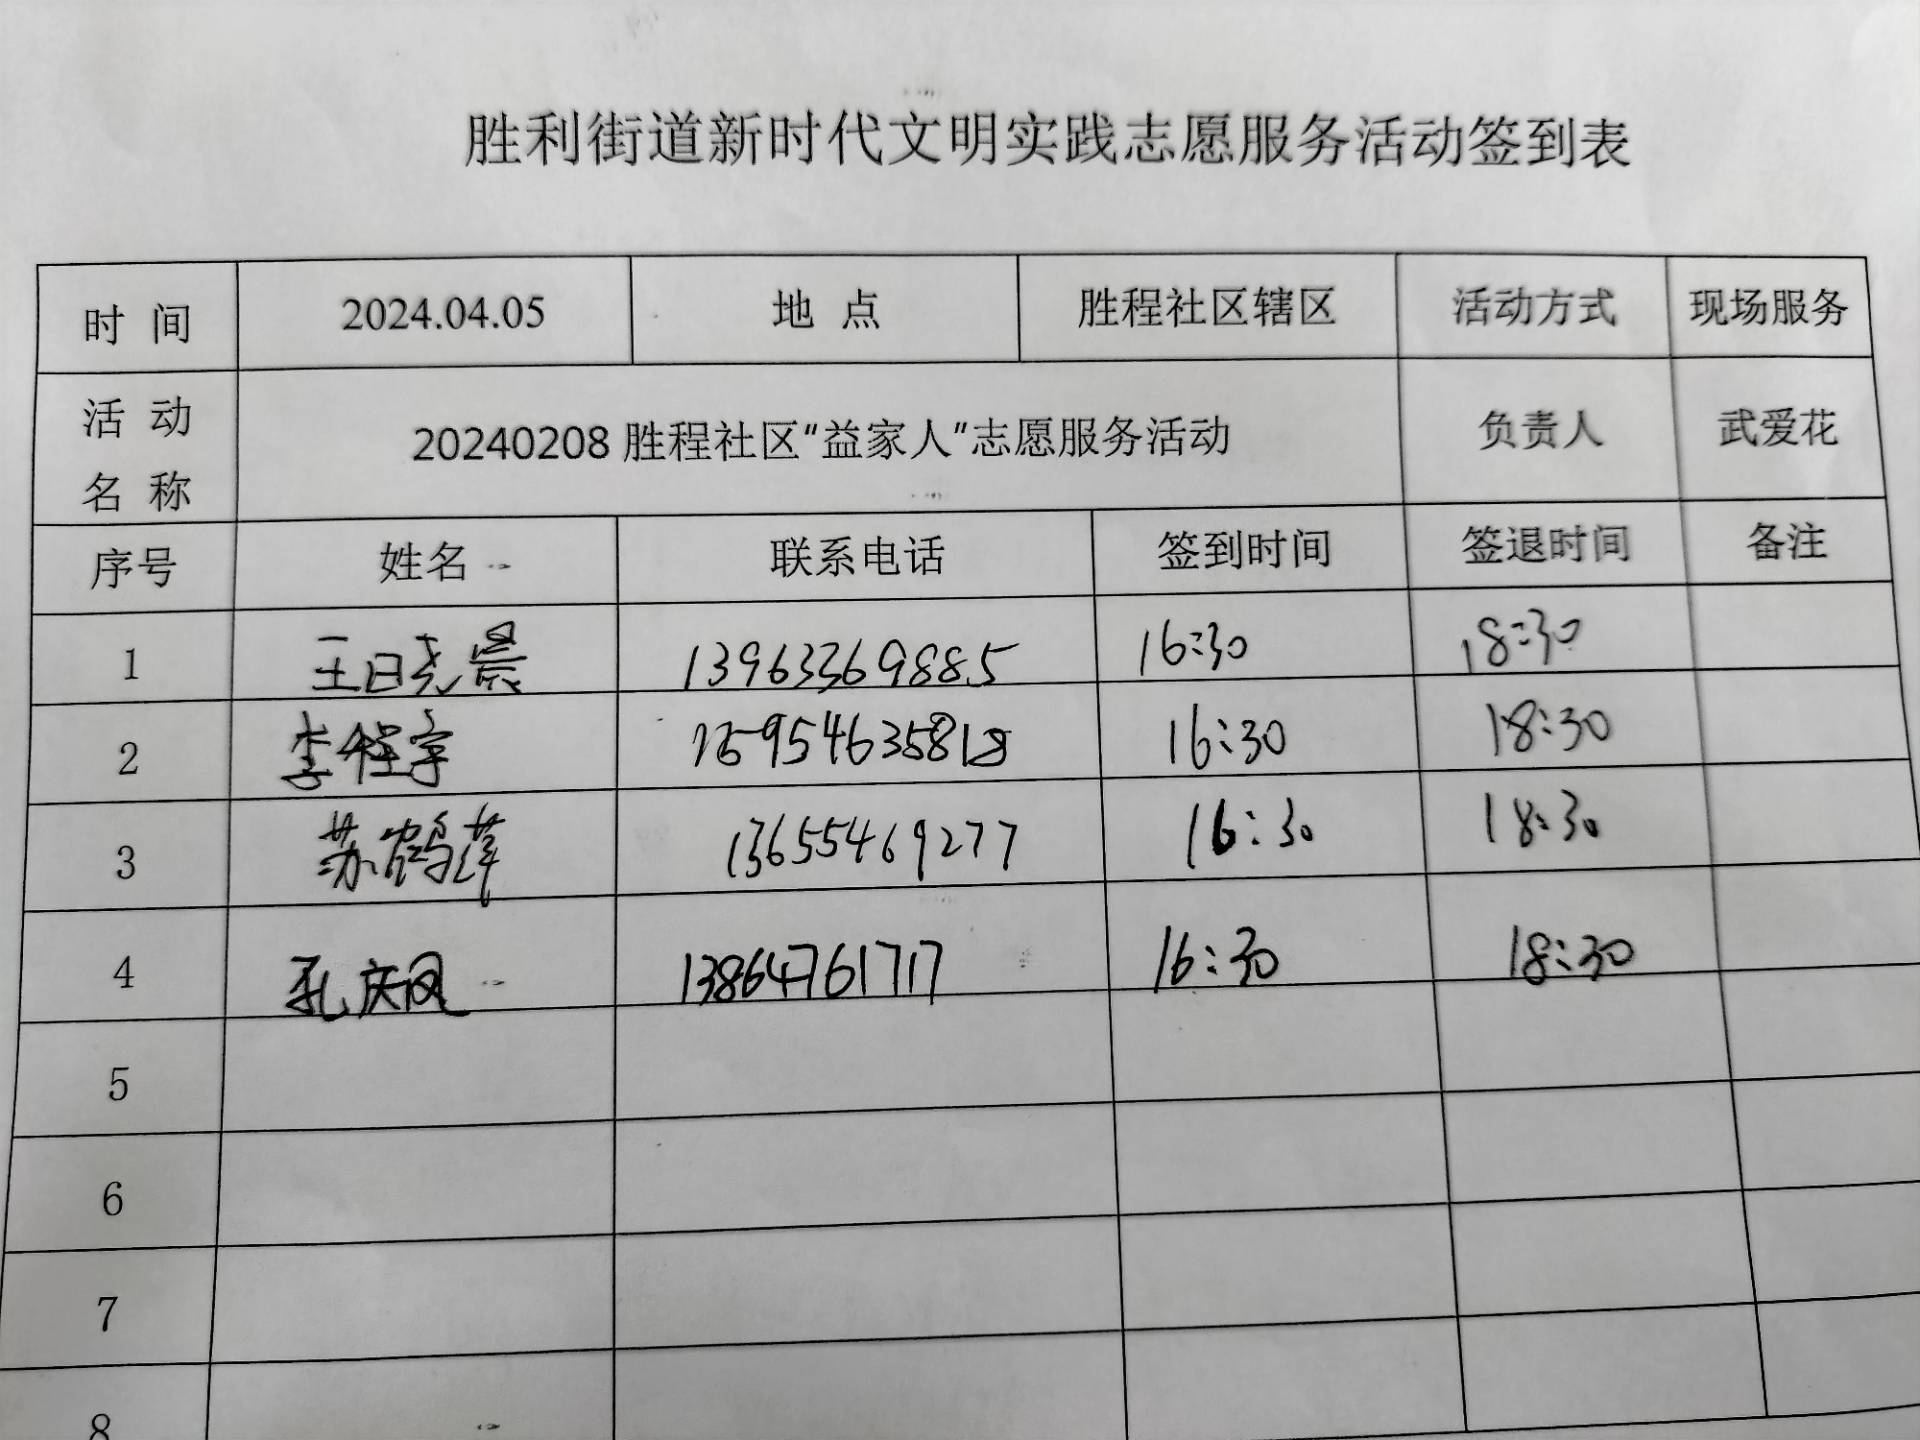 胜利街道新时代文明实践志愿服务活动签到表
时 间 2024.04.05 地 点 胜程社区辖区 活动方式 现场服务
活 动 名 称 20240208 胜程社区“益家人”志愿服务活动 负责人 武爱花
序号 姓名 联系电话 签到时间 签退时间 备注
1 王晓晨 13963369885 16:30 18:30
2 李程宇 16:30 18:30
3 苏鹤萍 13655469277 16:30 18:30
4 孔庆凤 13864761717 16:30 18:30
5
6
7
8